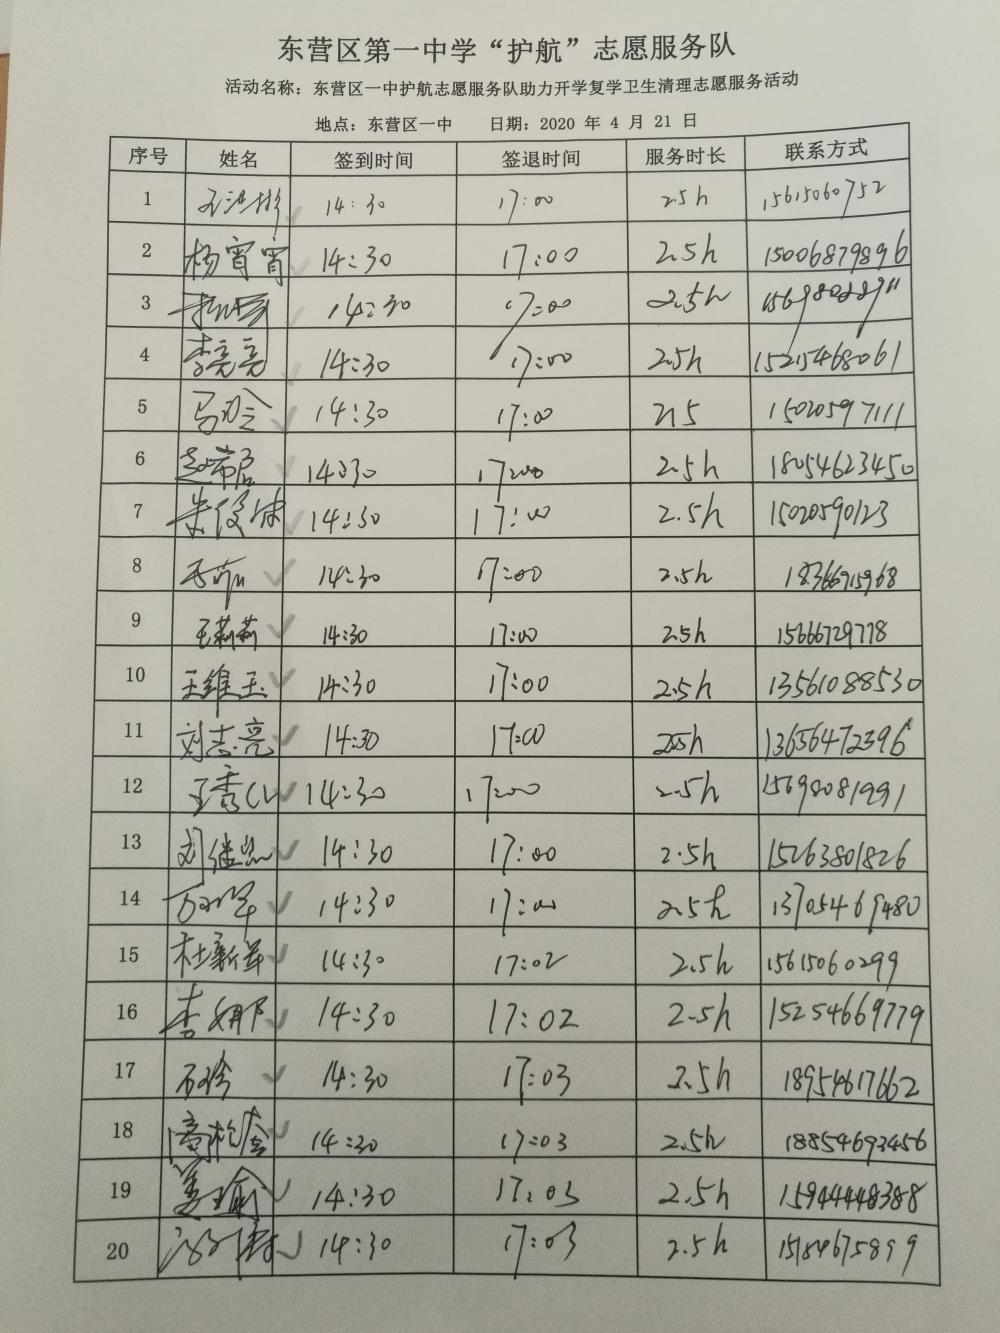 东营区第一中学“护航”志愿服务队
活动名称：东营区一中护航志愿服务队助力开学复学卫生清理志愿服务活动
地点：东营区一中 日期：2020 年 4 月 21 日
序号 姓名 签到时间 签退时间 服务时长 联系方式
1 14:30 17:00 2.5h 15615060752
2 杨宵宵 14:30 17:00 2.5h 15006879896
3 14:30 17:00 2.5h
4 李亮亮 14:30 17:00 2.5h 15215468061
5 14:30 17:00 2.5 15020597111
6 14:30 17:00 2.5h 18054623450
7 14:30 17:00 2.5h 15020590123
8 14:30 17:00 2.5h 18366915968
9 王莉莉 14:30 17:00 2.5h 15666729778
10 王维玉 14:30 17:00 2.5h 13561088530
11 刘志亮 14:30 17:00 2.5h 13656472396
12 14:30 17:00 2.5h 15698081991
13 14:30 17:00 2.5h 15263801826
14 14:30 17:00 2.5h 13705469480
15 杜新军 14:30 17:02 2.5h 15615060299
16 李娜 14:30 17:02 2.5h 15254669779
17 石玲 14:30 17:03 2.5h 18954617662
18 14:30 17:03 2.5h 18854693456
19 姜瑜 14:30 17:03 2.5h 15944448388
20 14:30 17:03 2.5h 15184675899